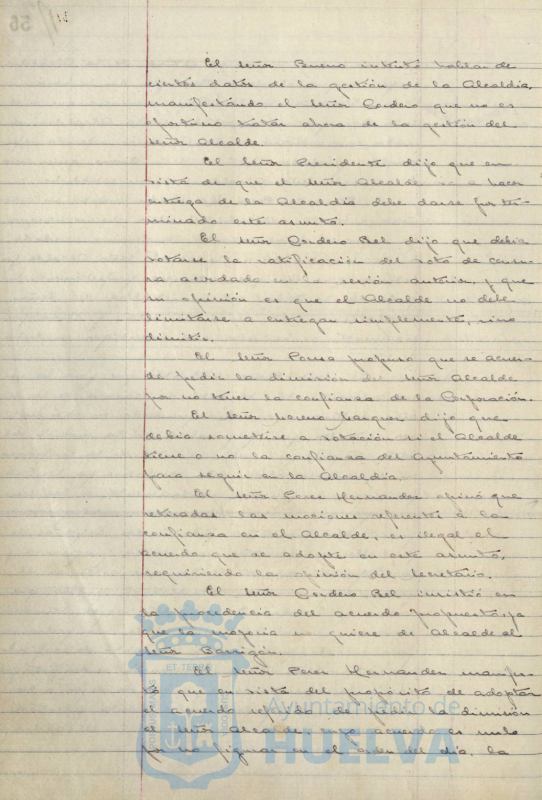 El Señor Bueno intentó hablar de
ciertos datos de la gestión de la Alcaldía,
manifestándo el Señor Cordero que no es
oportuno tratar ahora de la gestión del
Señor Alcalde.
El Señor Presidente dijo que en
vista de que el Señor Alcalde va a hacer
entrega de la Alcaldía debe darse por ter-
minado este asunto.
El Señor Cordero Bel dijo que debia
votarse la ratificación del voto de censu-
ra acordado en la sesión anterior, y que
su opinión es que el Alcalde no debe
limitarse a entregar simplemente, sino
dimitir.
El Señor Ponsa propuso que se acuer-
de pedir la dimisión del Señor Alcalde
por no tener la confianza de la Corporación.
El Señor Moreno Marquez dijo que
debia someterse a votación si el Alcalde
tiene o no la confianza del Ayuntamiento
para seguir en la Alcaldía.
El Señor Perez Hernandez opinó que
retiradas las mociones referentes a la
confianza en el Alcalde, es ilegal el
acuerdo que se adopte en este asunto,
requiriendo la opinión del Secretario.
El Señor Cordero Bel insistió en
la procedencia del acuerdo propuesto, ya
que la mayoria no quiere de Alcalde al
Señor Barrigón.
El Señor Perez Hernandez manifes-
tó que en vista del propósito de adoptar
el acuerdo referido de pedir la dimisión
al Señor Alcalde, cuyo acuerdo es nulo
por no figurar en el orden del día, la
56
Ayuntamiento de
HUELVA